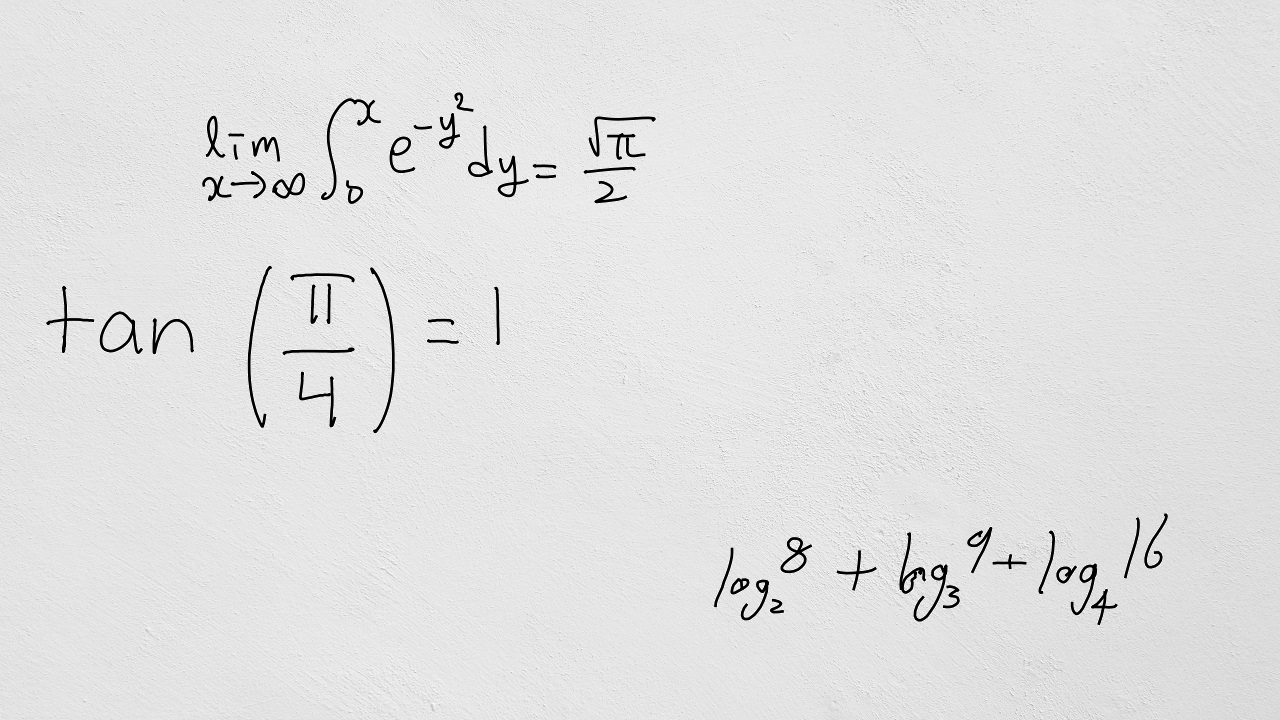 lim x→∞ ∫₀ˣ e^{-y²} dy = √π/2
tan (π/4) = 1
log₂8 + log₃9 + log₄16